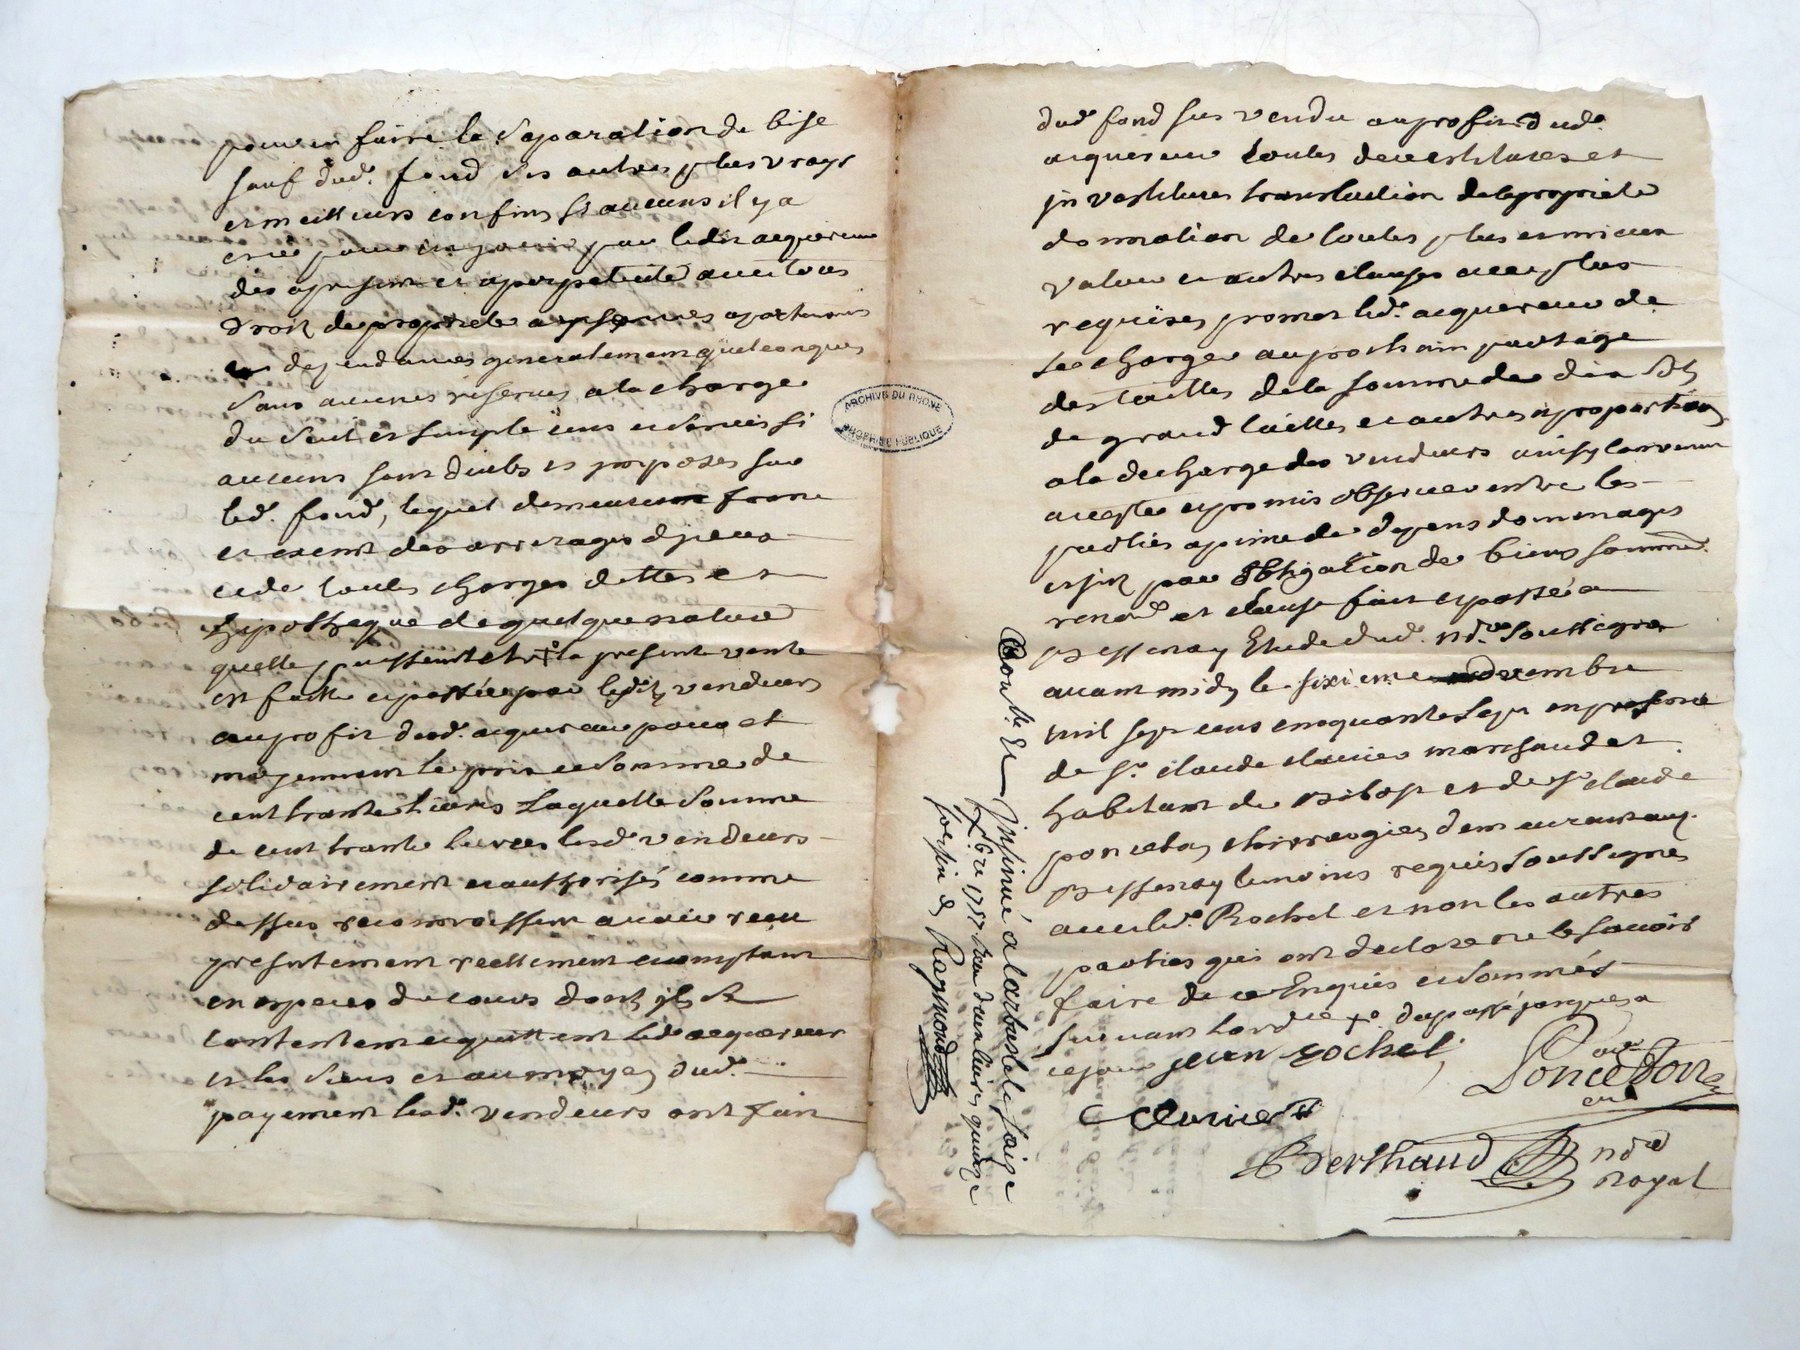 pour en faire la separation de bise
sauf dud. fond ses autres plus vrays
et meilleurs confins si aucuns il y a
et ce pour en jouir par ledit acquereur
dès apresent et aperpetuité avec tous
droits de propriete apartenances
et dependances generalement quelconques
sans aucunes reserves a la charge
du seul et simple cens et servis si
aucuns sont deubs et imposés sur
led. fond, lequel demeurera franc
et exemt des arrerages d'jceux
et de toutes charges dettes et
hipotheque de quelque nature
quelle puissent etre la presente vente
est faitte et passée par lesdits vendeurs
au profit dud. acquereur pour et
moyennant le prix et somme de
cent trante livres Laquelle somme
de cent trante livres lesd. vendeurs
solidairement et authorisés comme
dessus reconnoissent avoir reçu
presentement reellement et comptant
en especes de cours dont jls se
contentent et quittent led. acquereur
et les siens et au moyen dud.
payement lesd. vendeurs ont fait
dud. fond sus vendu au profit dud.
acquereur toutes devestitures et
jnvestitures translation de la propriete
donnation de toutes plus et mieux
value et autres clauses avec plus
requises promet led. acquereur de
se charger au prochain partage
des tailles de la somme de dix sols
de grand tailles et autres a proportion
a la decharge des vendeurs ainsy convenu
accepté et promis observer entre les
parties a peine de depens dommages
et jnt. par obligation de biens soummis.
renon. et clause fait et passé a
Bessenay Etude dud. nore. soussigné
avant midy le sixieme novembre
mil sept cens cinquante sept en presence
de sr. claude clavier marchand et
habitant de Bibost et de sr. claude
poncetou chirurgien demeurant aud.
Bessenay temoins requis soussignés
avec led. Rochet et non les autres
parties qui ont declaré ne le savoir
faire de ce Enquis et sommés
suivant lord. du passé jusques a
ce jour jean rochet
Poncetton
Clavier
Berthaud nore.
Royal
Controllé Et Jnsinué a Larbresle le seize
9bre 1757 reçu
Raymond
ARCHIVE DU RHONE
PROPRIETE PUBLIQUE